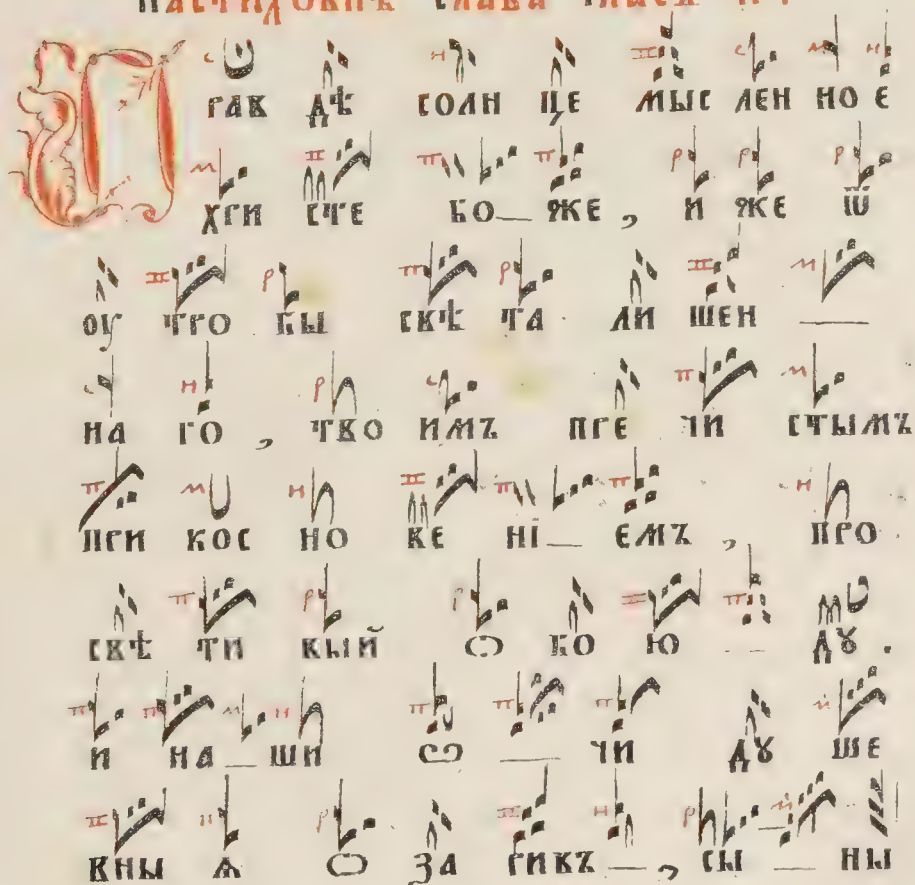 слава гласъ и҃.
П рав дѣ солн це мыс лен но е
хри сте бо же, и же ѿ
оу тро бы свѣ та ли шен
на го, тво имъ пре чи стымъ
при кос но ве ні емъ, про
свѣ ти вый ѻ бо ю дꙋ.
и на ши ѻ чи дꙋ ше
вны ѧ ѻ за ривъ, сы ны